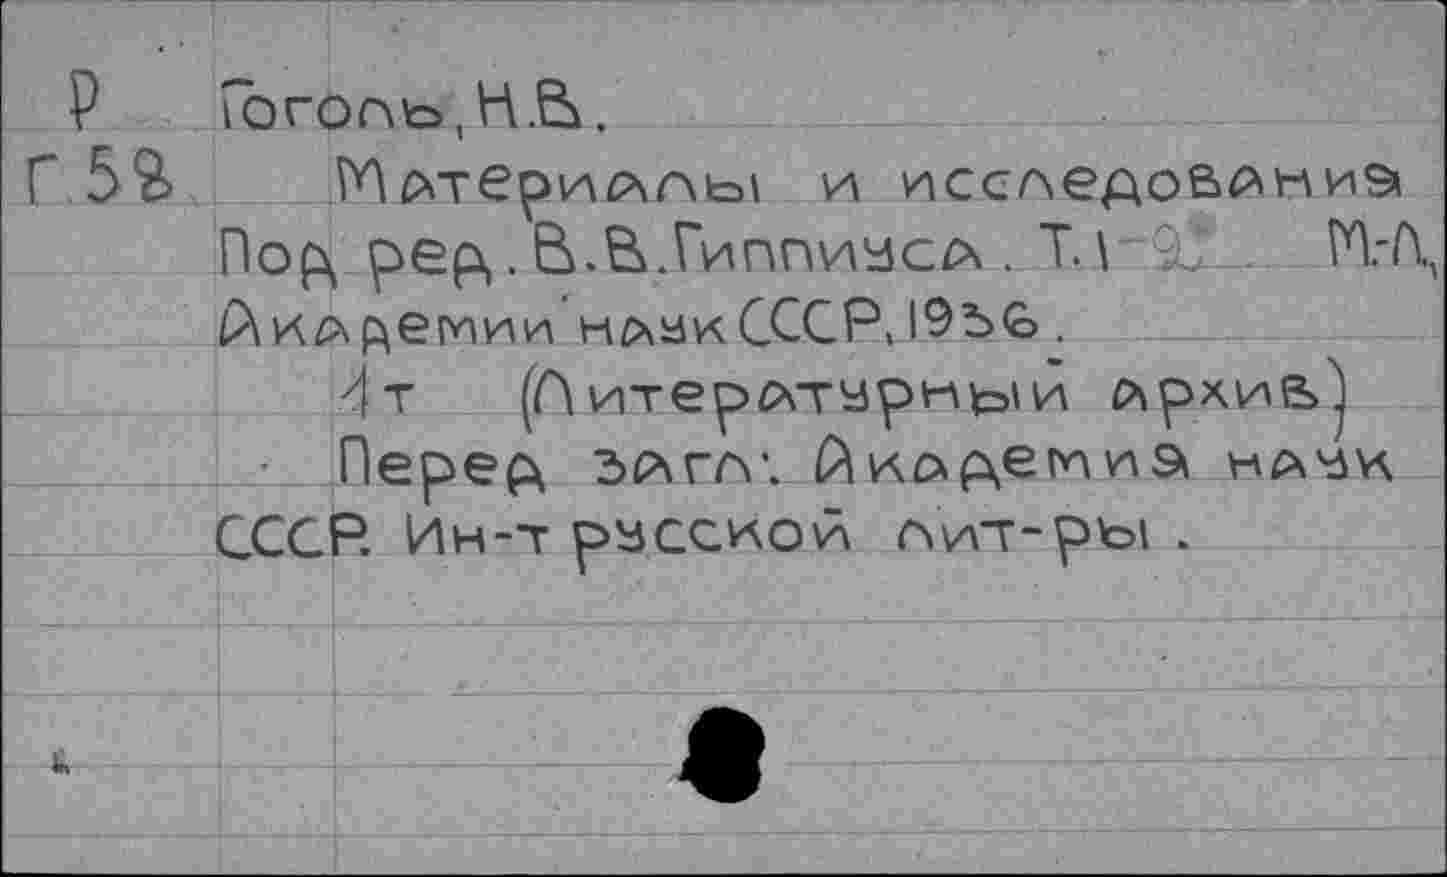 Р Гоголь, Н.В.
Г 58 Материалы и исследования
Под ред. В.В.Гиппиуса. Т.1 М.-Л.,
Академии наук СССР, 1936.
т (Литературный архив)
Перед загл: Академия наук
СССР. Ин-т русской лит-ры.